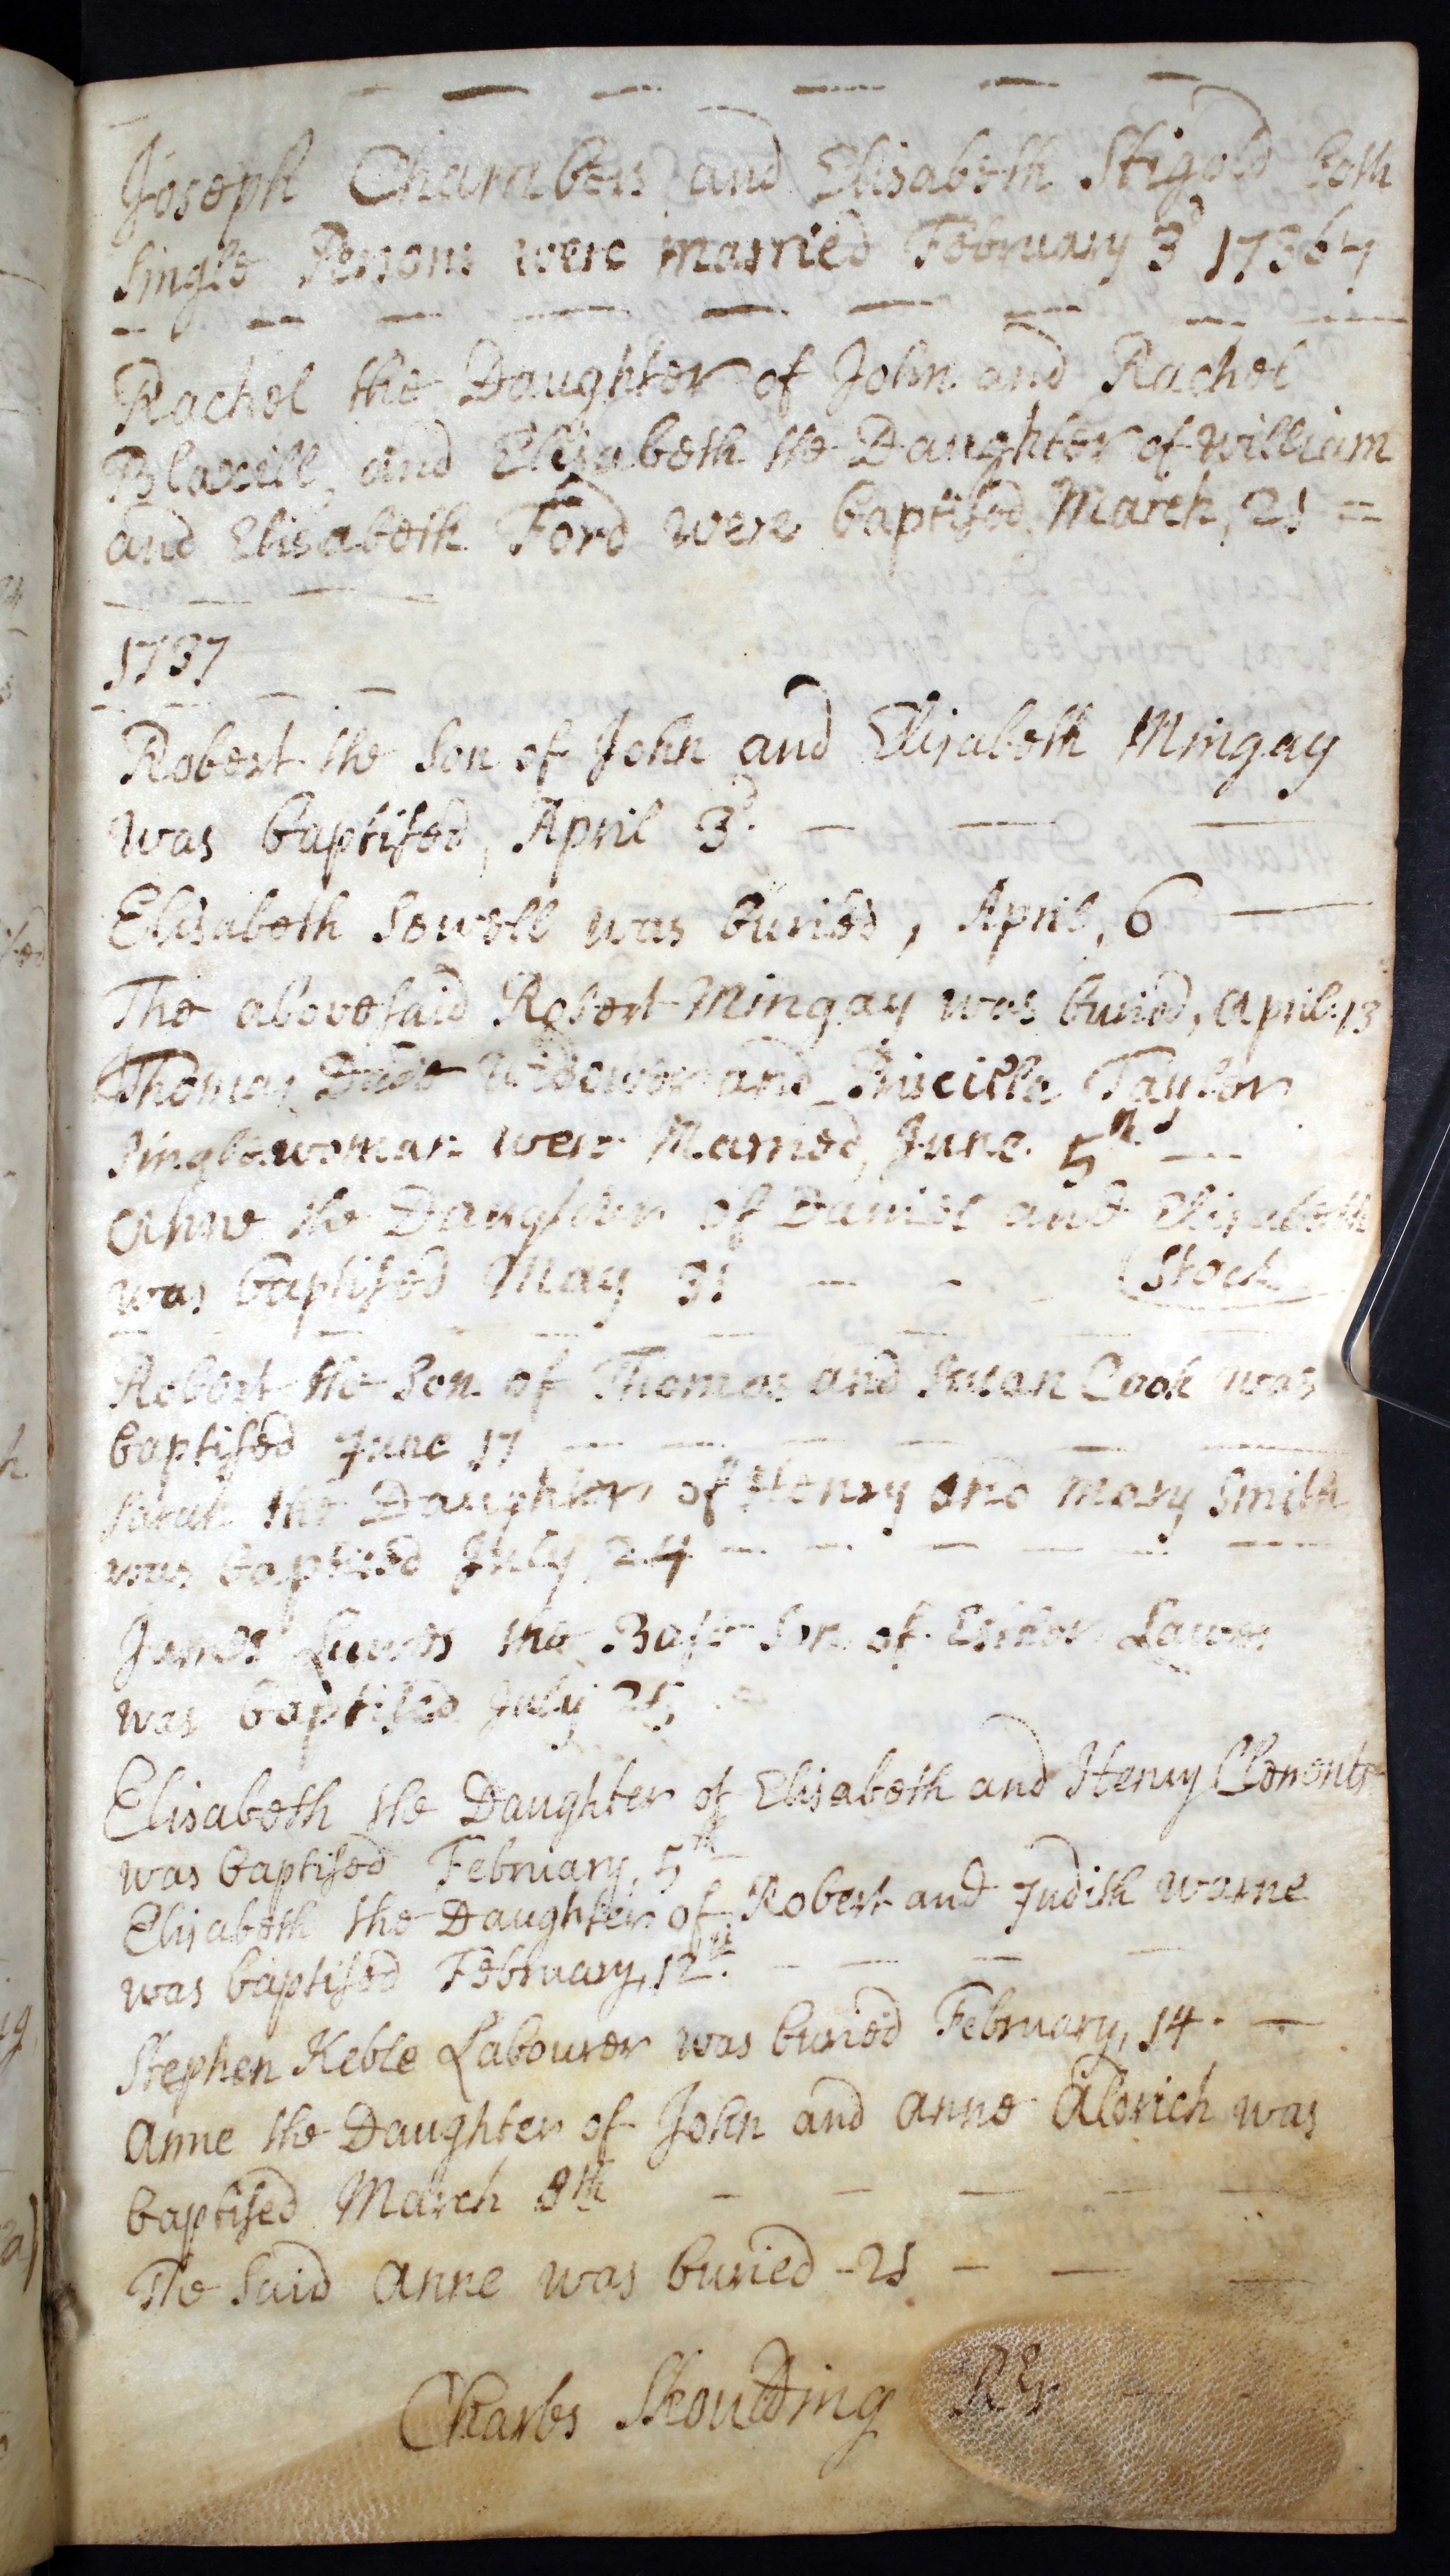 Joseph Chambers and Elisabeth Stigold both
single Persons were married February 3d 17367
Rachel the Daughter of John and Rachel
Bloxill, and Elisabeth the Daughter of William
and Elisabeth Ford were baptised March, 21 =
1737
Robert the Son of John and Elisabeth Mingay
was baptised, April 3d.
Elisabeth Sewell was buried, April, 6
The abovesaid Robert Mingay was buried, April. 13
Thomas Widower and Priscilla Taylor
singlewoman were Married, June 5th
Anne the Daughter of Daniel and Elisabeth
was baptised May 31 (Stock
Robert the Son of Thomas and Susan Cook was
baptised June 17
Sarah the Daughter of Henry and Mary Smith
was baptised July 24
James Lawes the Base Son of Esther Lawes
was baptised July 25
Elisabeth the Daughter of Elisabeth and Henry Clements
was baptised February, 5th
Elisabeth the Daughter of Robert and Judith Warne
was baptised February, 12th.
Stephen Keble Labourer was buried February, 14.
Anne the Daughter of John and Anne Aldrich was
baptised March 8th
The Said Anne was buried - 21
Charles Shoulding Rr